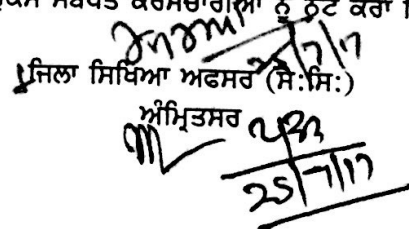 ਸਬੰਧਤ ਕਰਮਚਾਰੀਆਂ ਨੂੰ ਨੋਟ ਕਰਾ
25/7/17
ਜਿਲਾ ਸਿਖਿਆ ਅਫਸਰ (ਸੈ:ਸਿ:)
ਅੰਮ੍ਰਿਤਸਰ
25/7/17